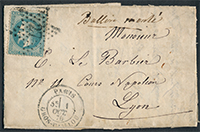 Ballon monté
Monsieur
E. Le Barbier
No 11 Cours Napoléon
Lyon
PARIS